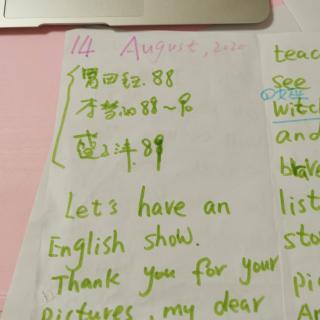 14 August, 2020
88
88~90
89
Let's have an
English show.
Thank you for your
pictures, my dear
teac
see
witch
and
brave
list
sto
pic
An